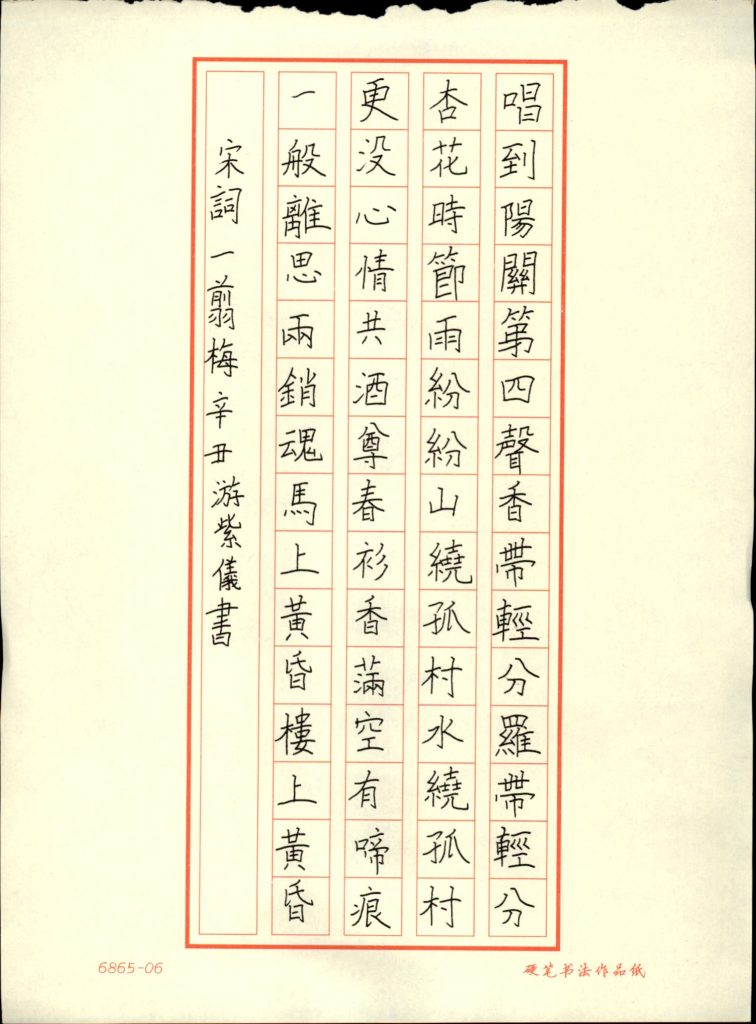 唱到陽關第四聲香帶輕分羅帶輕分
杏花時節雨紛紛山繞孤村水繞孤村
更没心情共酒尊春衫香滿空有啼痕
一般離思兩銷魂馬上黃昏樓上黃昏
宋詞一翦梅辛丑游紫儀書
6865-06
硬笔书法作品纸